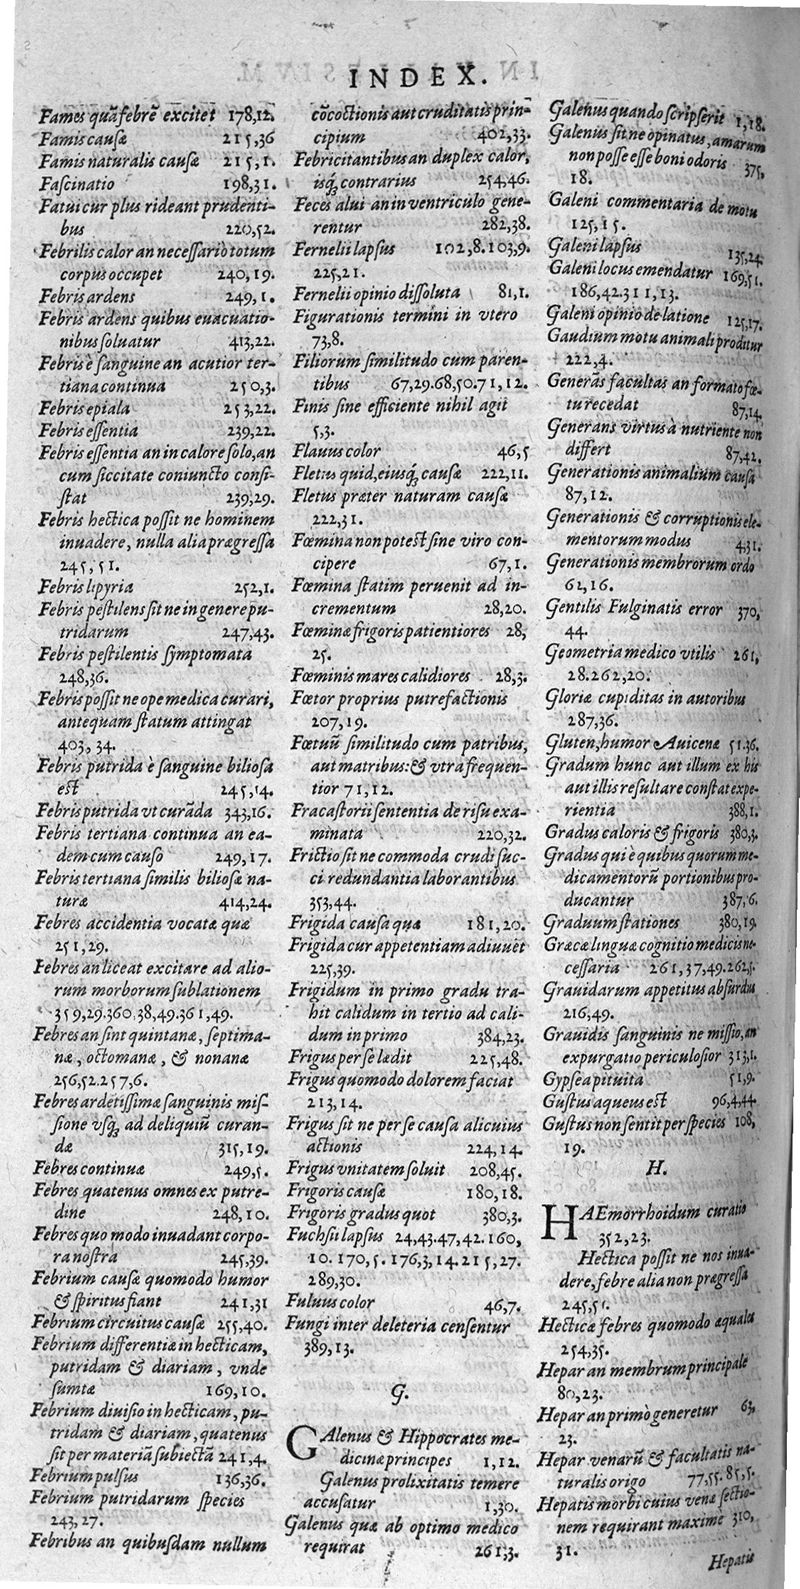 INDEX.
Fames quã febrẽ excitet 178,12.
Famis causæ 215,36
Famis naturalis causæ 215,1.
Fascinatio 198,31.
Fatui cur plus rideant prudenti-
bus 220,52.
Febrilis calor an necessariò totum
corpus occupet 240,19.
Febris ardens 249,1.
Febris ardens quibus euacuatio-
nibus soluatur 413,22.
Febris è sanguine an acutior ter-
tiana continua 250,3.
Febris epiala 253,22.
Febris essentia 239,22.
Febris essentia an in calore solo, an
cum siccitate coniuncto consi-
stat 239,29.
Febris hectica possit ne hominem
inuadere, nulla alia prægressa
245,51.
Febris lipyria 252,1.
Febris pestilens sit ne in genere pu-
tridarum 247,43.
Febris pestilentis symptomata
248,36.
Febris possit ne ope medica curari,
antequam statum attingat
403,34.
Febris putrida è sanguine biliosa
est 245,14.
Febris putrida vt curãda 343,16.
Febris tertiana continua an ea-
dem cum causo 249,17.
Febris tertiana similis biliosæ na-
turæ 414,24.
Febres accidentia vocatæ quæ
251,29.
Febres an liceat excitare ad alio-
rum morborum sublationem
359,29.360.38,49.361,49.
Febres an sint quintanæ, septima-
næ, octomanæ, & nonanæ
256,52.257,6.
Febres ardẽtissimæ sanguinis mis-
sione vsq; ad deliquiũ curan-
dæ 315,19.
Febres continuæ 249,5.
Febres quatenus omnes ex putre-
dine 248,10.
Febres quo modo inuadant corpo-
ra nostra 245,39.
Febrium causæ quomodo humor
& spiritus fiant 241,31
Febrium circuitus causæ 255,40.
Febrium differentiæ in hecticam,
putridam & diariam, vnde
sumtæ 169,10.
Febrium diuisio in hecticam, pu-
tridam & diariam, quatenus
sit per materiã subiectã 241,4.
Febrium pulsus 136,36.
Febrium putridarum species
243,27.
Febribus an quibusdam nullum
cõcoctionis aut cruditatis prin-
cipium 402,33.
Febricitantibus an duplex calor,
isq; contrarius 254,46.
Feces alui an in ventriculo gene-
rentur 282,38.
Fernelii lapsus 102,8.103,9.
225,21.
Fernelii opinio dissoluta 81,1.
Figurationis termini in vtero
73,8.
Filiorum similitudo cum paren-
tibus 67,29.68,50.71,12.
Finis sine efficiente nihil agit
5,3.
Flauus color 46,5
Fletus quid, eiusq; causæ 222,11.
Fletus præter naturam causæ
222,31.
Fœmina non potest sine viro con-
cipere 67,1.
Fœmina statim peruenit ad in-
crementum 28,20.
Fœminæ frigoris patientiores 28,
25.
Fœminis mares calidiores 28,3.
Fœtor proprius putrefactionis
207,19.
Fœtuũ similitudo cum patribus,
aut matribus: & vtra frequen-
tior 71,12.
Fracastorii sententia de risu exa-
minata 220,32.
Frictio sit ne commoda crudi suc-
ci redundantia laborantibus
353,44.
Frigida causa quæ 181,20.
Frigida cur appetentiam adiuuẽt
225,39.
Frigidum in primo gradu tra-
hit calidum in tertio ad cali-
dum in primo 384,23.
Frigus per se lædit 225,48.
Frigus quomodo dolorem faciat
213,14.
Frigus sit ne per se causa alicuius
actionis 224,14.
Frigus vnitatem soluit 208,45.
Frigoris causæ 180,18.
Frigoris gradus quot 380,3.
Fuchsii lapsus 24,43.47,42.160,
10.170,5.176,3,14.215,27.
289,30.
Fuluus color 46,7.
Fungi inter deleteria censentur
389,13.
G.
GAlenus & Hippocrates me-
dicinæ principes 1,12.
Galenus prolixitatis temere
accusatur 1,30.
Galenus quæ ab optimo medico
requirat 261,3.
Galenus quando scripserit 1,18.
Galenus sit ne opinatus, amarum
non posse esse boni odoris 375,
18.
Galeni commentaria de motu
125,15.
Galeni lapsus 135,24.
Galeni locus emendatur 169,51.
186,42.311,13.
Galeni opinio de latione 125,17.
Gaudium motu animali proditur
222,4.
Generãs facultas an formato fœ-
tu recedat 87,14.
Generans virtus à nutriente non
differt 87,42.
Generationis animalium causa
87,12.
Generationis & corruptionis ele-
mentorum modus 4,31.
Generationis membrorum ordo
62,16.
Gentilis Fulginatis error 370,
44.
Geometria medico vtilis 261,
28.262,20.
Gloriæ cupiditas in autoribus
287,36.
Gluten, humor Auicenæ 51.36.
Gradum hunc aut illum ex his
aut illis resultare constat expe-
rientia 388,1.
Gradus caloris & frigoris 380,3.
Gradus qui è quibus quorum me-
dicamentorũ portionibus pro-
ducantur 387,6.
Graduum stationes 380,19.
Græcæ linguæ cognitio medicis ne-
cessaria 261,37,49.262,5.
Grauidarum appetitus absurdus
216,49.
Grauidis sanguinis ne missio, an
expurgatio periculosior 313,1.
Gypsea pituita 51,9.
Gustus aqueus est 96,4,44.
Gustus non sentit per species 108,
19.
H.
HAEmorrhoidum curatio
352,23.
Hectica possit ne nos inua-
dere, febre alia non prægressa
245,51.
Hecticæ febres quomodo æquales
254,35.
Hepar an membrum principale
80,23.
Hepar an primò generetur 63,
23.
Hepar venarũ & facultatis na-
turalis origo 77,55.85,5.
Hepatis morbi cuius venæ sectio-
nem requirant maximè 310,
31.
Hepatis